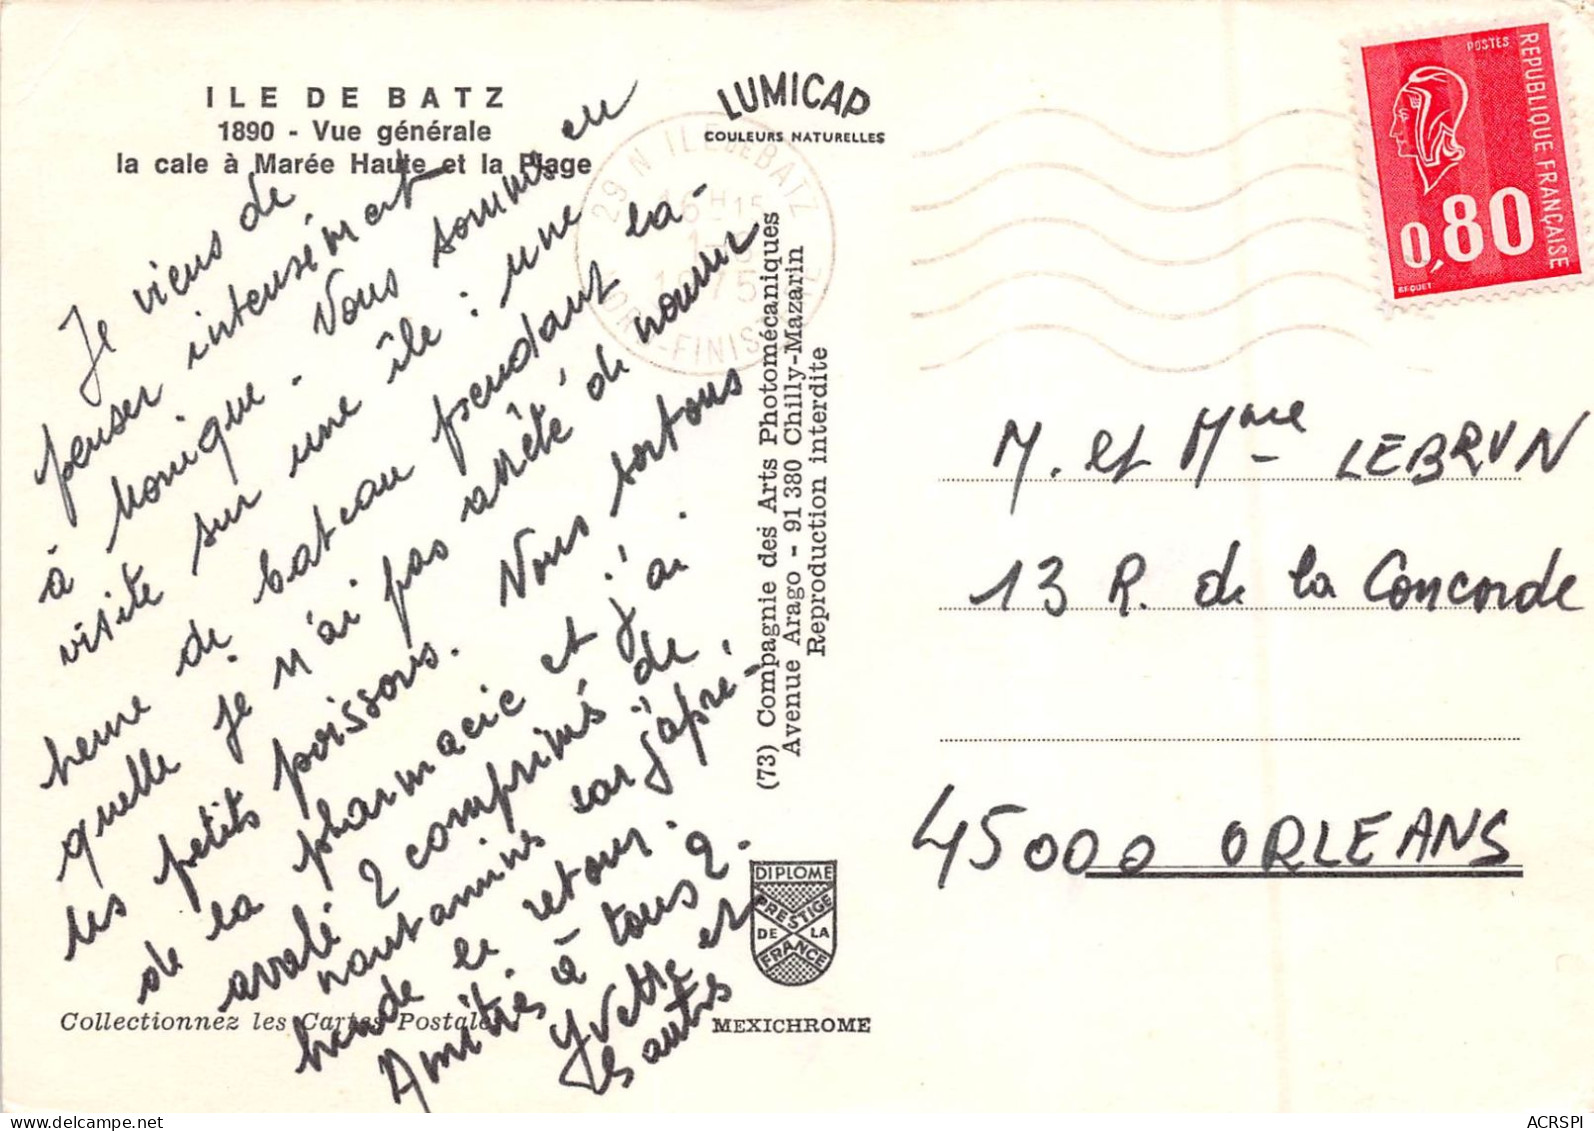 ILE DE BATZ
1890 - Vue générale
la cale à Marée Haute et la Plage
LUMICAP
COULEURS NATURELLES
Je viens de
penser intensément
à Monique. Nous sommes en
visite sur une île : une
heure de bateau pendant la-
quelle je n'ai pas arrêté de nourrir
les petits poissons. Nous sortons
de la pharmacie et j'ai
avalé 2 comprimés de
nautamine car j'apré-
hende le retour.
Amitiés à tous 2.
Yvette et
les autres
29 N ILE DE BATZ
16H15
1975
NORD-FINISTERE
(73) Compagnie des Arts Photomécaniques
Avenue Arago - 91 380 Chilly-Mazarin
Reproduction interdite
POSTES
REPUBLIQUE FRANÇAISE
0,80
BEQUET
M. et Mme LEBRUN
13 R. de la Concorde
45000 ORLEANS
DIPLOME
PRESTIGE
DE LA
FRANCE
Collectionnez les Cartes Postales
MEXICHROME
ACRSPI